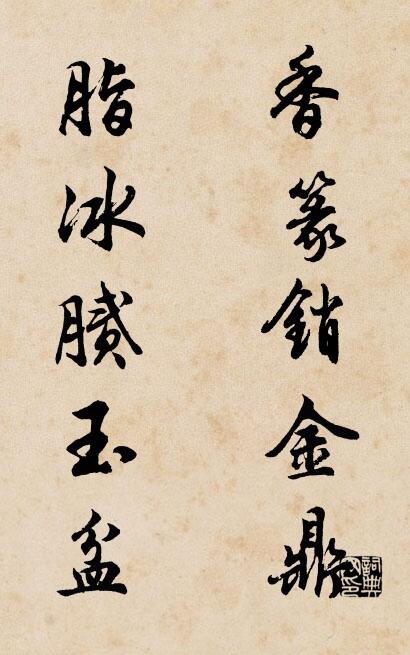 香篆銷金鼎
脂冰膩玉盆
詞典